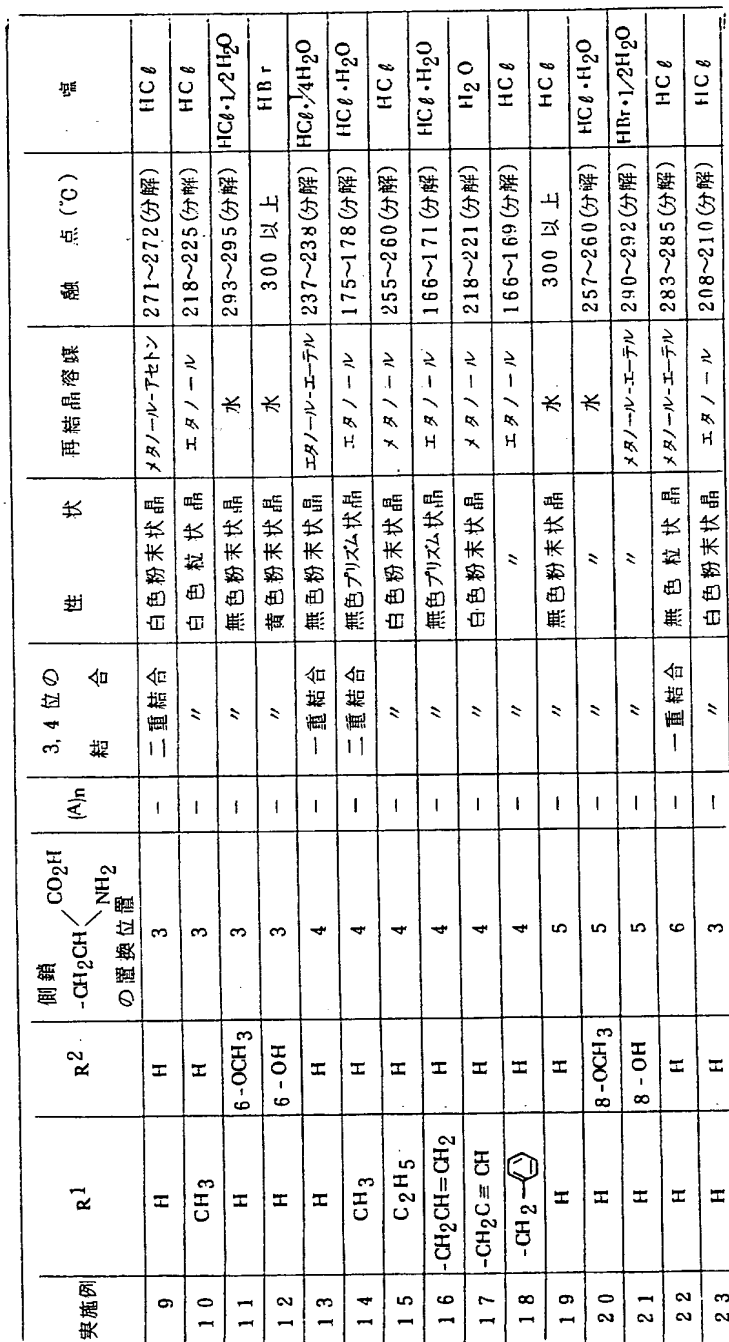 実施例 R1 R2 側鎖 -CH2CH CO2H NH2 の置換位置 (A)n 3,4位の結合 性状 再結晶溶媒 融点(℃) 塩
9 H H 3 − 二重結合 白色粉末状晶 メタノール-アセトン 271~272(分解) HCl
10 CH3 H 3 − 〃 白色粒状晶 エタノール 218~225(分解) HCl
11 H 6-OCH3 3 − 〃 無色粉末状晶 水 293~295(分解) HCl・1/2H2O
12 H 6-OH 3 − 〃 黄色粉末状晶 水 300以上 HBr
13 H H 4 − 一重結合 無色粉末状晶 エタノール-エーテル 237~238(分解) HCl・1/4H2O
14 CH3 H 4 − 二重結合 無色プリズム状晶 エタノール 175~178(分解) HCl・H2O
15 C2H5 H 4 − 〃 白色粉末状晶 メタノール 255~260(分解) HCl
16 -CH2CH=CH2 H 4 − 〃 無色プリズム状晶 エタノール 166~171(分解) HCl・H2O
17 -CH2C≡CH H 4 − 〃 白色粉末状晶 メタノール 218~221(分解) H2O
18 -CH2- H 4 − 〃 〃 エタノール 166~169(分解) HCl
19 H H 5 − 〃 無色粉末状晶 水 300以上 HCl
20 H 8-OCH3 5 − 〃 〃 水 257~260(分解) HCl・H2O
21 H 8-OH 5 − 〃 〃 メタノール-エーテル 290~292(分解) HBr・1/2H2O
22 H H 6 − 一重結合 無色粒状晶 メタノール-エーテル 283~285(分解) HCl
23 H H 3 − 〃 白色粉末状晶 エタノール 208~210(分解) HCl